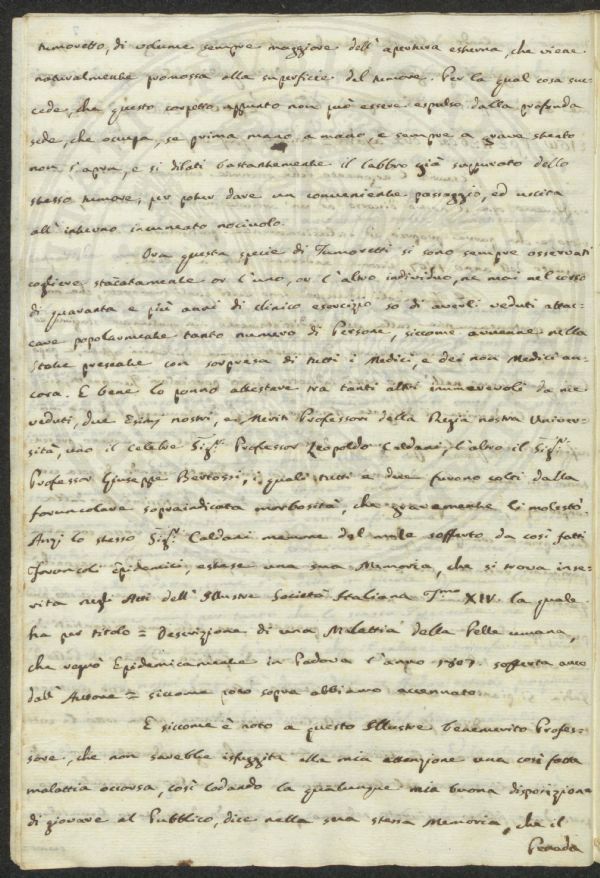 tumoretto, di volume sempre maggiore dell' apertura esterna, che viene
naturalmente promossa alla superficie del tumore. Per la qual cosa suc-
cede, che questo corpetto appunto non può essere espulso dalla profonda
sede, che occupa, se prima mano, a mano, e sempre a grave stento
non s'apra, e si dilati bastantemente il labbro già suppurato dello
stesso tumore, per poter dare un conveniente passaggio, ed uscita
all' interno incuneato nocivolo.
Ora questa specie di Tumoretti si sono sempre osservati
cogliere staccatamente or l'uno, or l'altro individuo, ne mai nel corso
di quaranta e più anni di clinico esercizio so di averli veduti attac-
care popolarmente tanto numero di Persone, siccome avvenne nella
State presente con sorpresa di tutti i Medici, e dei non Medici an-
cora. E bene lo ponno attestare tra tanti altri innumerevoli da me
veduti, due Esimj nostri, e Meriti Professori della Regia nostra Univer-
sità, uno il celebre Sig.r Professor Leopoldo Caldani, l'altro il Sig.r
Professor Giuseppe Bertossi, i quali tutti e due furono colti dalla
foruncolare sopraindicata morbosità, che gravemente li molestò.
Anzi lo stesso Sig.r Caldani memore del male sofferto da così fatti
Foruncoli Epidemici, estese una sua Memoria, che si trova inse-
rita negli Atti dell' Illustre Società Italiana T.mo XIV. la quale
ha per titolo = Descrizione di una Malattia della Pelle umana,
che regnò Epidemicamente in Padova l'anno 1807. sofferta anco
dall' Autore = siccome poco sopra abbiamo accennato.
E siccome è noto a questo Illustre benemerito Profes-
sore, che non sarebbe isfuggita alla mia attenzione una così fatta
malattia occorsa, così lodando la qualunque mia buona disposizione
di giovare al Pubblico, dice nella sua stessa Memoria, che il
Penada